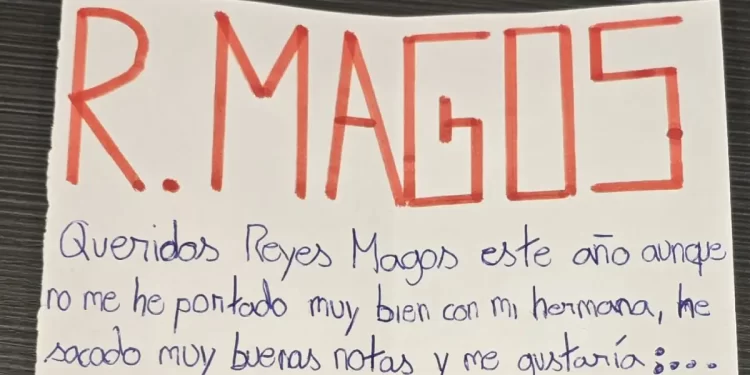 R. MAGOS
Queridos Reyes Magos este año aunque
no me he portado muy bien con mi hermana, he
sacado muy buenas notas y me gustaría:...